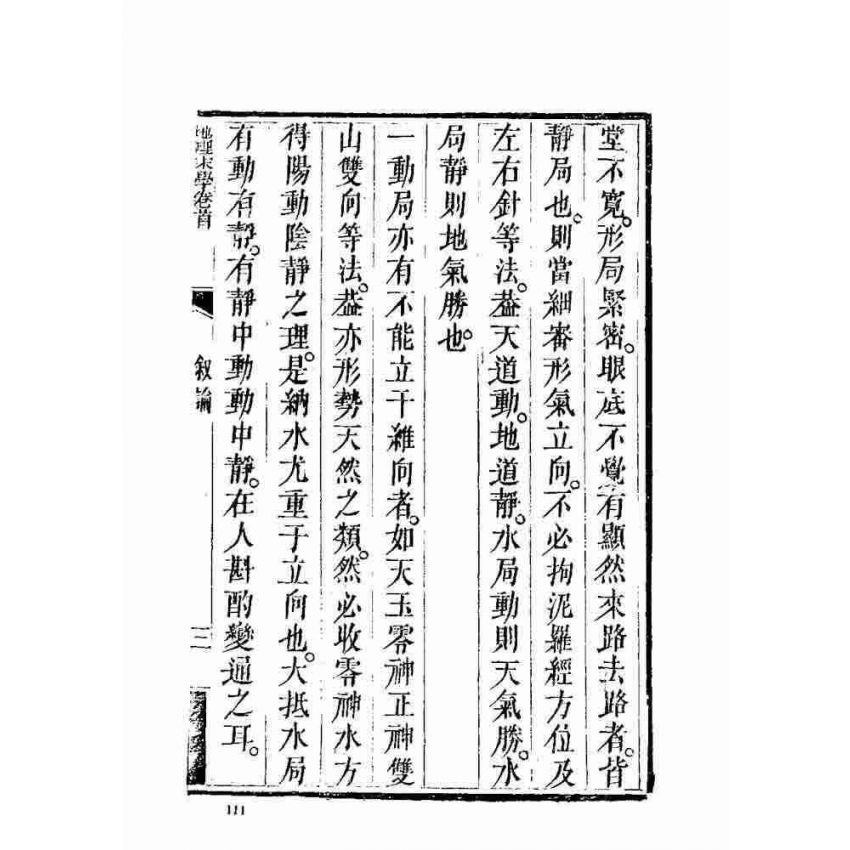 堂不寬。形局緊密。眼底不覺有顯然來路去路者。皆
靜局也。則當細審形氣立向。不必拘泥羅經方位及
左右針等法。葢天道動。地道靜。水局動則天氣勝。水
局靜則地氣勝也。
一動局亦有不能立干維向者。如天玉零神正神雙
山雙向等法。葢亦形勢天然之類。然必收零神水方
得陽動陰靜之理。是納水尤重于立向也。大抵水局
有動有靜。有靜中動動中靜。在人斟酌變通之耳。
地理末學卷首
敘論
三
111